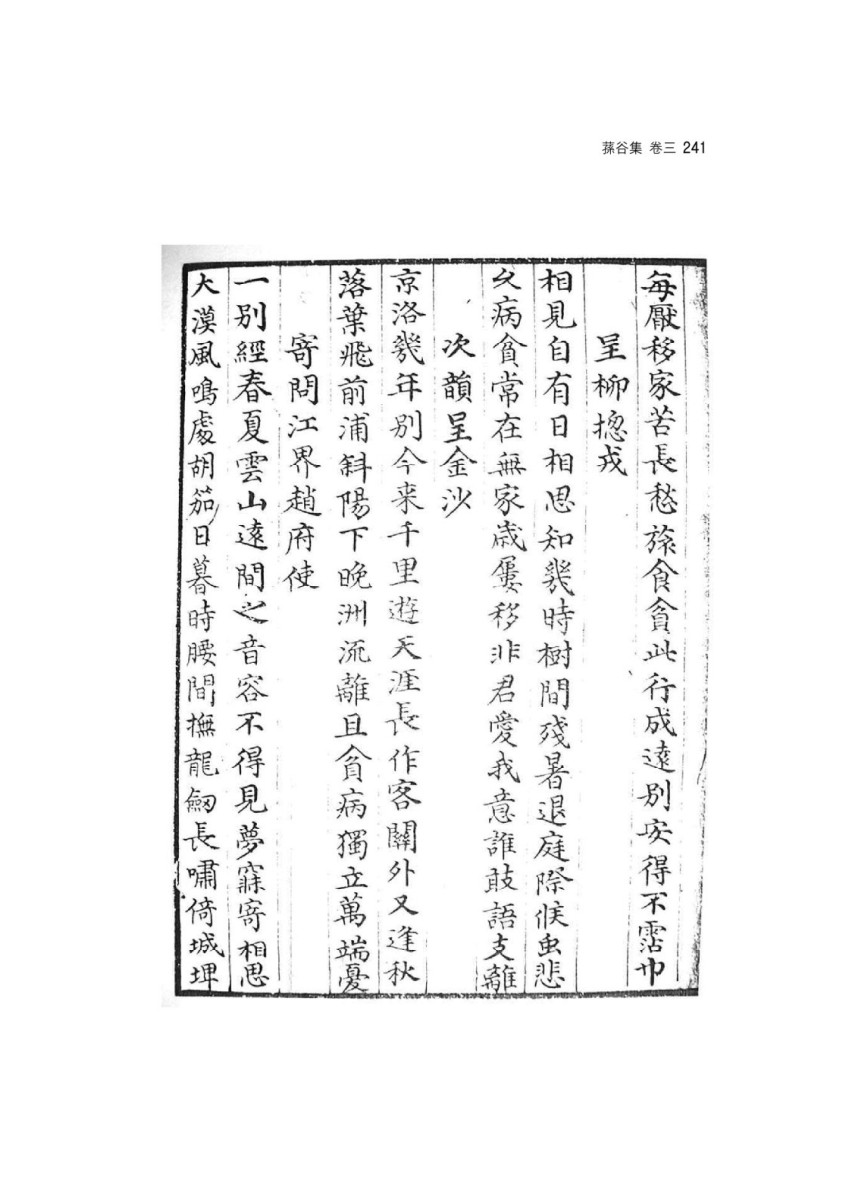 蓀谷集 卷三 241
每厭移家苦長愁旅食貧此行成遠別安得不霑巾
呈柳摠戎
相見自有日相思知幾時樹間殘暑退庭際候虫悲
久病貧常在無家歲屢移非君愛我意誰敢語支離
次韻呈金沙
京洛幾年別今来千里遊天涯長作客關外又逢秋
落葉飛前浦斜陽下晩洲流離且貧病獨立萬端憂
寄問江界趙府使
一別經春夏雲山遠間之音容不得見夢寐寄相思
大漠風鳴處胡笳日暮時腰間撫龍劒長嘯倚城埤